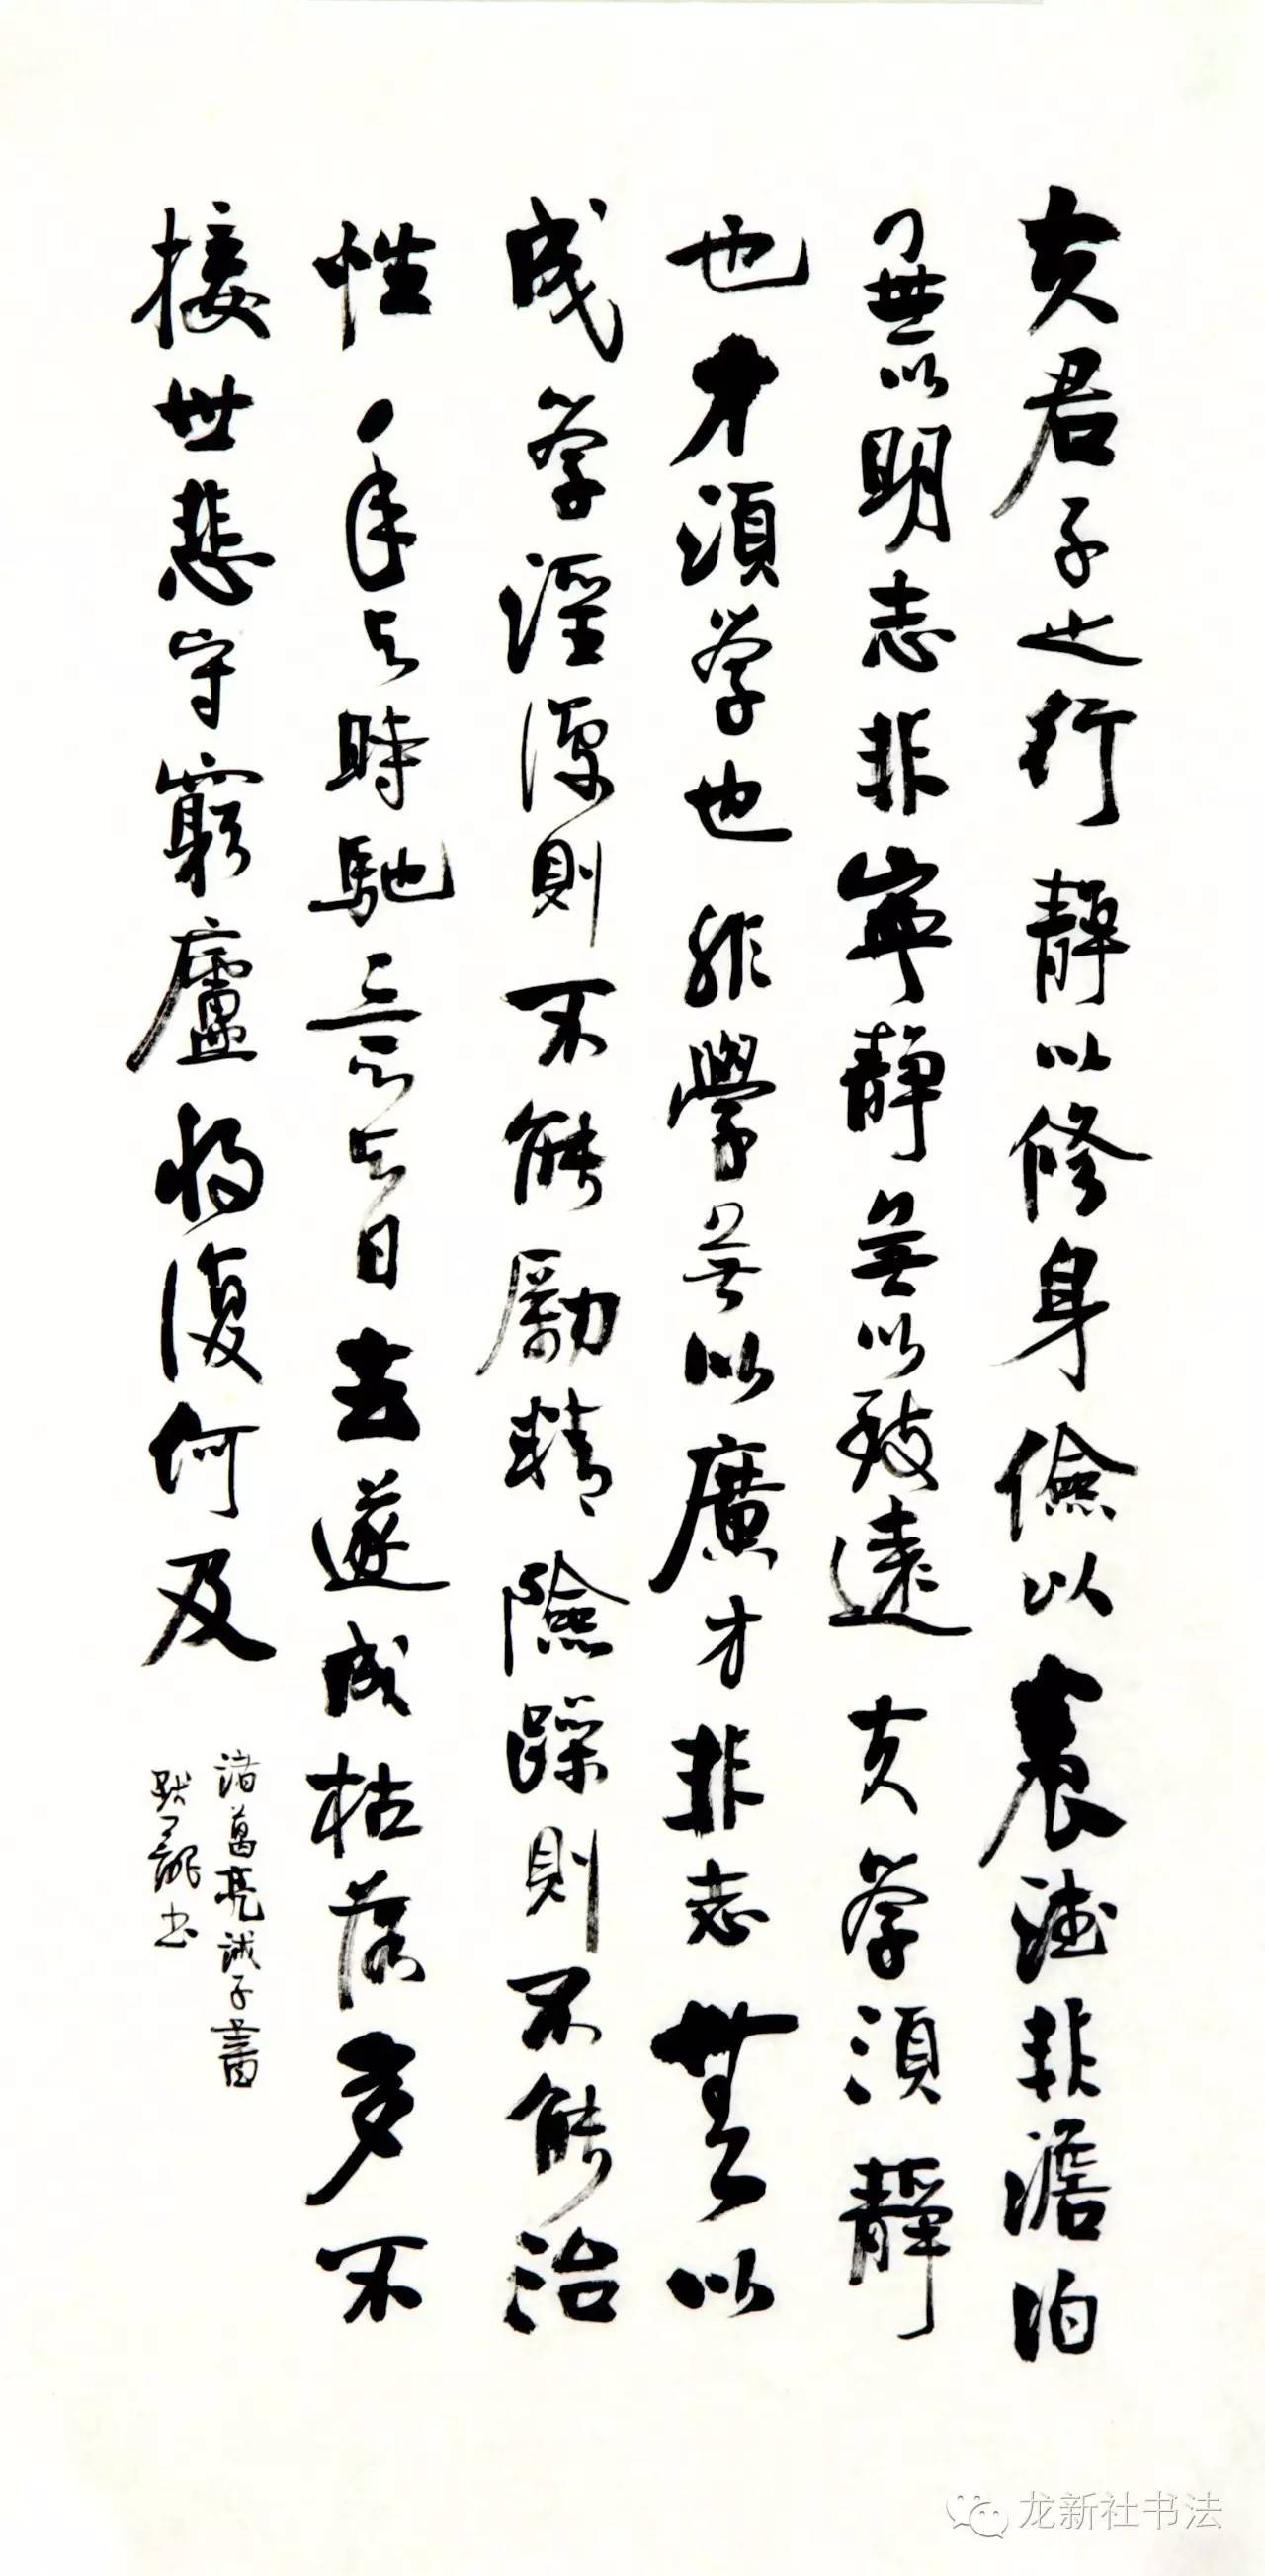 夫君子之行靜以修身儉以養德非澹泊
無以明志非寧靜無以致遠夫學須靜
也才須學也非學無以廣才非志無以
成學淫慢則不能勵精險躁則不能治
性年與時馳意與日去遂成枯落多不
接世悲守窮廬將復何及
諸葛亮誡子書
書
龙新社书法